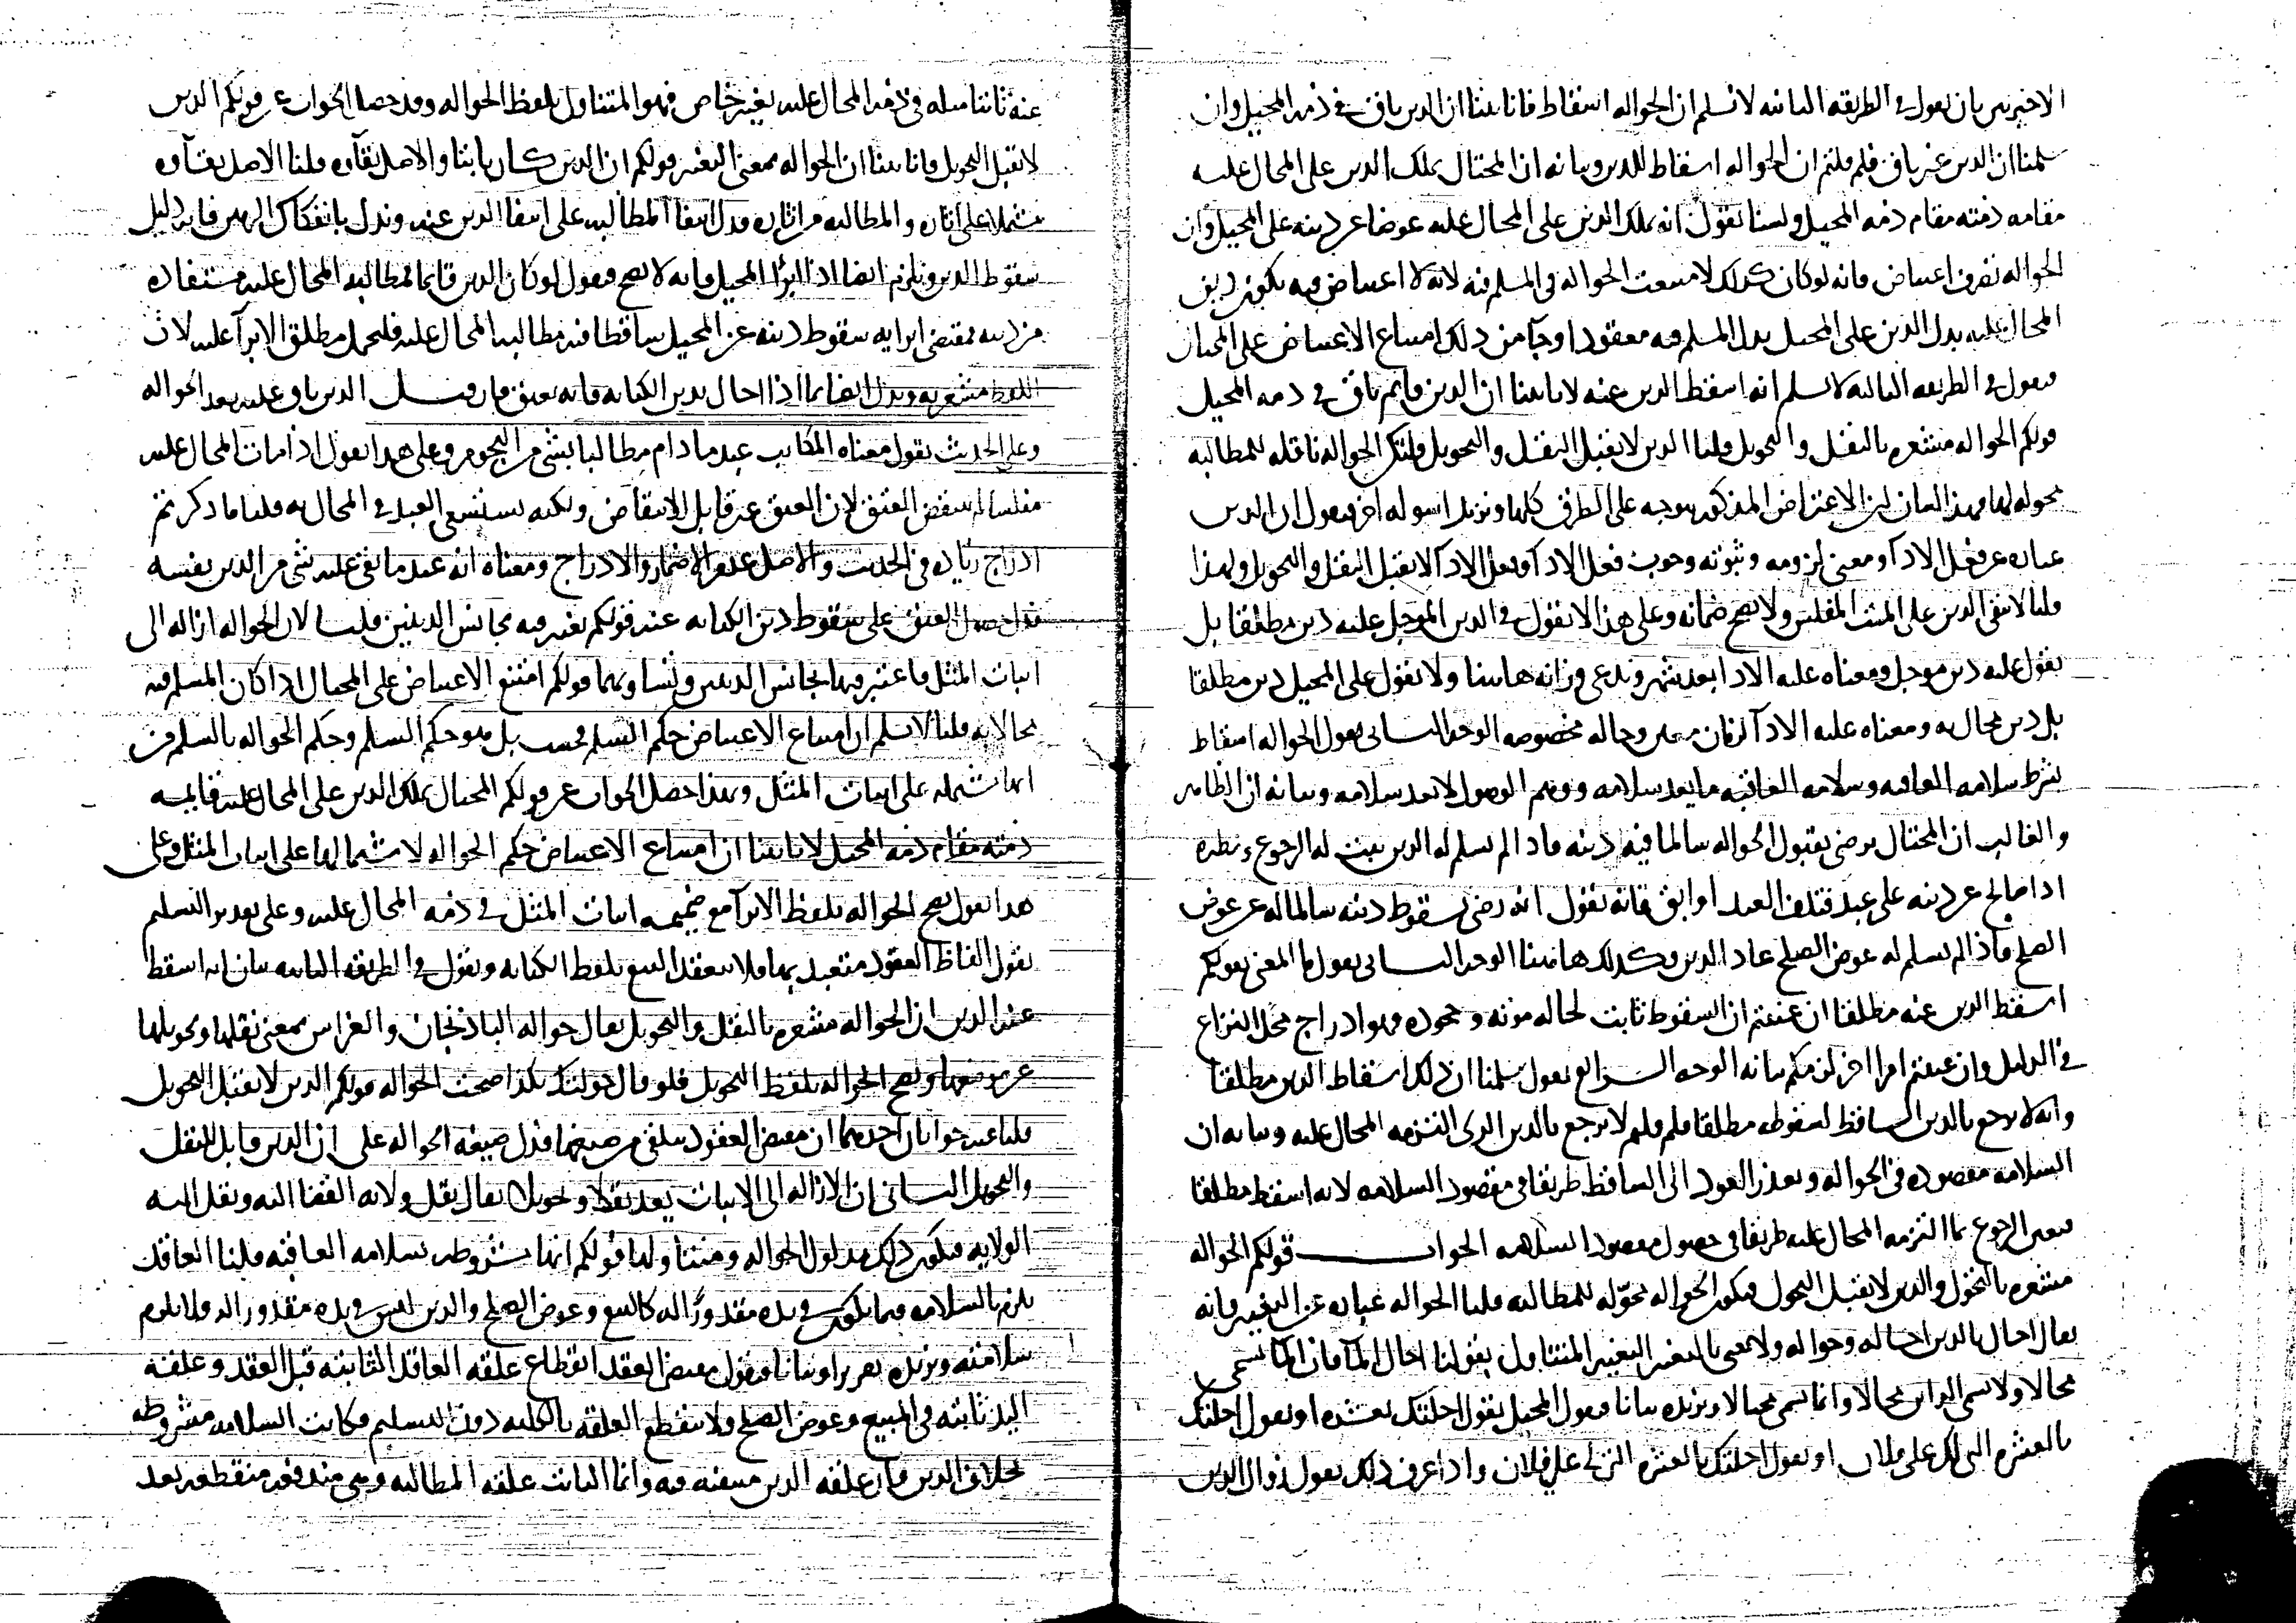 الاخيرتين بان نقول في الطريقه الثانيه لا نسلم ان الحواله اسقاط فانا بينا ان الدين باق في ذمه المحيل وان
سلمنا ان الدين غير باق فلم قلتم ان الحواله اسقاط للدين وبيانه ان المحتال يملك الدين على المحال عليه
مقامه ذمته مقام ذمه المحيل ولسنا نقول انه يملك الدين على المحال عليه عوضا عن دينه على المحيل وان
الحواله تصرف اعتياض فانه لو كان كذلك لامتنعت الحواله في المسلم فيه لانه لا اعتياض فيه بكون دين
المحال عليه بدل الدين على المحيل بدل المسلم فيه معقودا وجآ من ذلك امتناع الاعتياض على المحتال
ونقول في الطريقه الثالثه لا نسلم انه اسقط الدين عنه لانا بينا ان الدين قايم باق في ذمه المحيل
قولكم الحواله مشعره بالنقل والتحويل قلنا الدين لا يقبل النقل والتحويل ولكن الحواله ناقله للمطالبه
محوله لها وبهذا البيان لان الاعتراض المذكور يتوجه على الطرق كلها ونزيد اسوله اخر فنقول ان الدين
عباره عن فعل الادآ ومعنى لزومه وثبوته وجوب فعل الادآ وفعل الادآ لا يقبل النقل والتحويل ولهذا
قلنا لا يبقى الدين على الميت المفلس ولا يصح ضمانه وعلى هذا لا نقول في الدين الموجل عليه دين مطلقا بل
نقول عليه دين موجل ومعناه عليه الادا بعد شهر وندعي وزانه هاهنا ولا نقول على المحيل دين مطلقا
بل دين محال به ومعناه عليه الادآ لزمان معين وحاله مخصوصه الوجه الثاني نقول الحواله اسقاط
بشرط سلامه العاقبه وسلامه العاقبه ما يعد سلامه وقسم الوصول لا يعد سلامه وبيانه ان الظاهر
والغالب ان المحتال يرضى بقبول الحواله سالما فيه دينه فاذا لم يسلم له الدين يثبت له الرجوع ونظيره
اذا صالح عن دينه على عبد فتلف العبد او ابق فانه نقول انه رضي بسقوط دينه سالما له عن عوض
الصلح فاذا لم يسلم له عوض الصلح عاد الدين وكذلك هاهنا الوجه الثالث نقول ما المعنى بقولكم
اسقط الدين عنه مطلقا ان عنيتم ان السقوط ثابت لحاله موته وجحوده فهو ادراج محل النزاع
في الدليل وان عنيتم امرا اخر لزمكم بيانه الوجه الرابع نقول سلمنا ان ذلك اسقاط الدين مطلقا
وانه لا يرجع بالدين الساقط لسقوطه مطلقا فلم قلتم لا يرجع بالدين الذي التزمه المحال عليه وبيانه ان
السلامه مقصوده في الحواله وتعذر العود الى الساقط طريقا في مقصود السلامه لانه اسقط مطلقا
فتعين الرجوع بما التزمه المحال عليه طريقا في حصول مقصود السلامه الجواب قولكم الحواله
مشعره بالتحول والدين لا يقبل التحول فيكون الحواله محوله للمطالبه قلنا الحواله عباره عن التغيير فانه
يقال احال بالدين احاله وحواله ولا نعني بالتغير التغيير المتناول بقولنا احال المآ فان المآ يسمى
محالا ولا يسمى الدين محالا وانما يسمى محتالا ونزيده بيانا فنقول المحيل يقول احلتك بعشره او يقول احلتك
بالعشره التي لك على فلان او يقول احلتك بالعشره التي لي على فلان واذا عرف ذلك نقول زوال الدين
عنه ثابتا مثله في ذمه المحال عليه تغير خاص فهو المتناول بلفظ الحواله وقد حصل الجواب عن قولكم الدين
لا يقبل التحويل فانا بينا ان الحواله بمعنى التغير قولكم ان الدين كان ثابتا والاصل بقآوه قلنا الاصل بقآوه
مشتملا على اثاره والمطالبه من اثاره فدل انتفا المطالبه على انتفا الدين عنه وندل بانفكاك الرهن فانه دليل
سقوط الدين ويلزم ايضا اذا ابرأ المحيل فانه لا يصح فنقول لو كان الدين قايما فمطالبه المحال عليه مستفاده
من دينه فمقتضى ابرايه سقوط دينه عن المحيل ساقطا فيه مطالبه المحال عليه فليحمل مطلق الابرآ عليه لان
اللفظ مشعر به وندل ايضا بما اذا احال بدين الكتابه فانه يعتق فان قيل الدين باق عليه بعد الحواله
وعلى الحديث نقول معناه المكاتب عبد ما دام مطالبا بشي من النجوم وعلى هذا نقول اذا مات المحال عليه
مفلسا لم ينتقض العتق لان العتق غير قابل للانتقاض ولكنه يستسعي العبد في المحال به قلنا ما ذكرتم
ادراج زياده في الحديث والاصل عدم الاضمار والادراج ومعناه انه عبد ما بقي عليه شي من الدين نفسه
فدل حصول العتق على سقوط دين الكتابه عنه قولكم يعتبر فيه تجانس الدينين قلنا لان الحواله ازاله الى
اثبات المثل فاعتبر فيها تجانس الدينين وتساويهما قولكم امتنع الاعتياض على المحتال اذا كان المسلم فيه
محالا به قلنا لا نسلم ان امتناع الاعتياض حكم السلم فحسب بل هو حكم السلم وحكم الحواله بالسلم من
انها مشتمله على اثبات المثل وبهذا حصل الجواب عن قولكم المحتال يملك الدين على المحال عليه قايمه
ذمته مقام ذمه المحيل لانا بينا ان امتناع الاعتياض حكم الحواله لاشتمالها على اثبات المثل وعلى
هذا نقول يصح الحواله بلفظ الابرآ مع ضميمه اثبات المثل في ذمه المحال عليه وعلى تقدير التسليم
نقول الفاظ العقود متعبد بها فلا ينعقد البيع بلفظ الكتابه ونقول في الطريقه الثانيه بيان انه اسقط
عنه الدين ان الحواله مشعره بالنقل والتحويل يقال حواله الباذنجان والغراس بمعنى نقلها وتحويلها
عن موضعها وتصح الحواله بلفظ التحويل فلو قال حولتك بكذا صحت الحواله قولكم الدين لا يقبل التحويل
قلنا عنه جوابان احدهما ان مقتضى العقود يتلقى من صيغها فدل صيغه الحواله على ان الدين قابل للنقل
والتحويل الثاني ان الازاله الى الاثبات يعد نقلا وتحويلا يقال نقل ولايه القضا اليه ونقل اليه
الولايه فيكون ذلك مدلول الحواله ومتناولها قولكم انها مشروطه بسلامه العاقبه قلنا العاقد
يلزم بالسلامه فيما يكون في يده مقدورا له كالبيع وعوض الصلح والدين ليس في يده مقدورا له فلا يلزم
سلامته ونزيده تقريرا وبيانا فنقول مقتضى العقد انقطاع علقه العاقد الثابته قبل العقد وعلقه
اليد ثابته في المبيع وعوض الصلح ولا ينقطع العلقه بالكليه دون التسليم فكانت السلامه مشروطه
بخلاف الدين فان علقه الدين منتفيه فيه وانما الثابت علقه المطالبه وهي منقطعه بعد